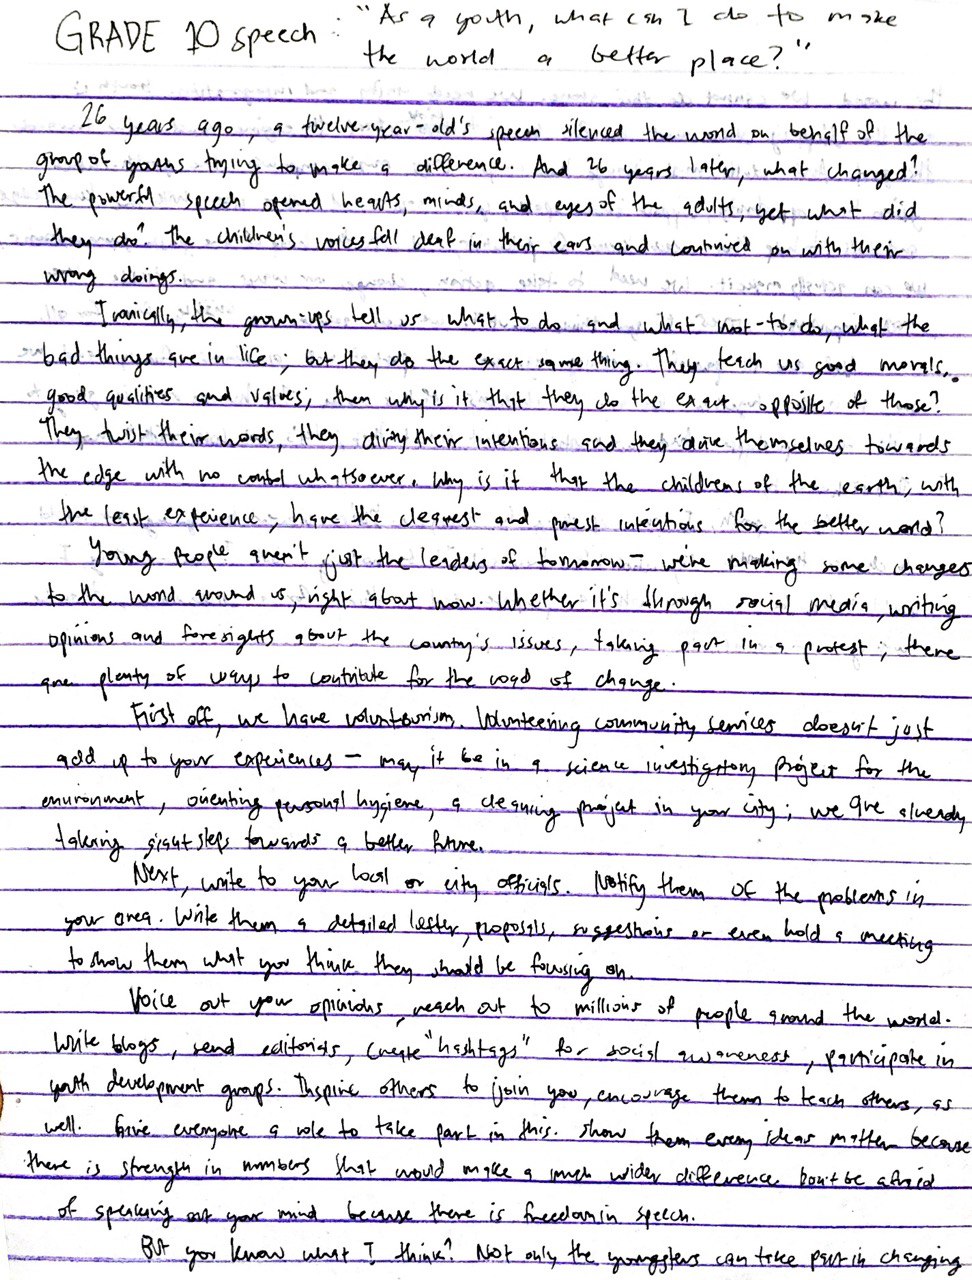 GRADE 10 speech : "As a youth, what can I do to make
the world a better place?"
26 years ago, a twelve-year-old's speech silenced the world on behalf of the
group of youths trying to make a difference. And 26 years later, what changed?
The powerful speech opened hearts, minds, and eyes of the adults, yet what did
they do? The children's voices fell deaf in their ears and continued on with their
wrong doings.
Ironically, the grown-ups tell us what to do and what not-to-do, what the
bad things are in life; but they do the exact same thing. They teach us good morals,
good qualities and values; then why is it that they do the exact opposite of those?
They twist their words, they dirty their intentions and they drive themselves towards
the edge with no control whatsoever. Why is it that the childrens of the earth, with
the least experience, have the clearest and purest intentions for the better world?
Young people aren't just the leaders of tomorrow — we're making some changes
to the world around us, right about now. Whether it's through social media, writing
opinions and foresights about the country's issues, taking part in a protest; there
are plenty of ways to contribute for the road of change.
First off, we have voluntourism. Volunteering community services doesn't just
add up to your experiences — may it be in a science investigatory project for the
environment, orienting personal hygiene, a cleaning project in your city; we are already
taking giant steps towards a better future.
Next, write to your local or city officials. Notify them of the problems in
your area. Write them a detailed letter, proposals, suggestions or even hold a meeting
to show them what you think they should be focusing on.
Voice out your opinions, reach out to millions of people around the world.
Write blogs, send editorials, create "hashtags" for social awareness, participate in
youth development groups. Inspire others to join you, encourage them to teach others, as
well. Give everyone a role to take part in this. Show them every ideas matter because
there is strength in numbers that would make a much wider difference. Don't be afraid
of speaking out your mind because there is freedom in speech.
But you know what I think? Not only the youngsters can take part in changing